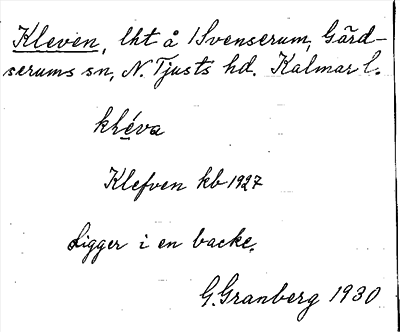 Kleven, lht å 1 Svenserum, Gärd-
serums sn, N. Tjusts hd. Kalmar l.
kléva
Klefven kb 1927
Ligger i en backe.
G. Granberg 1930